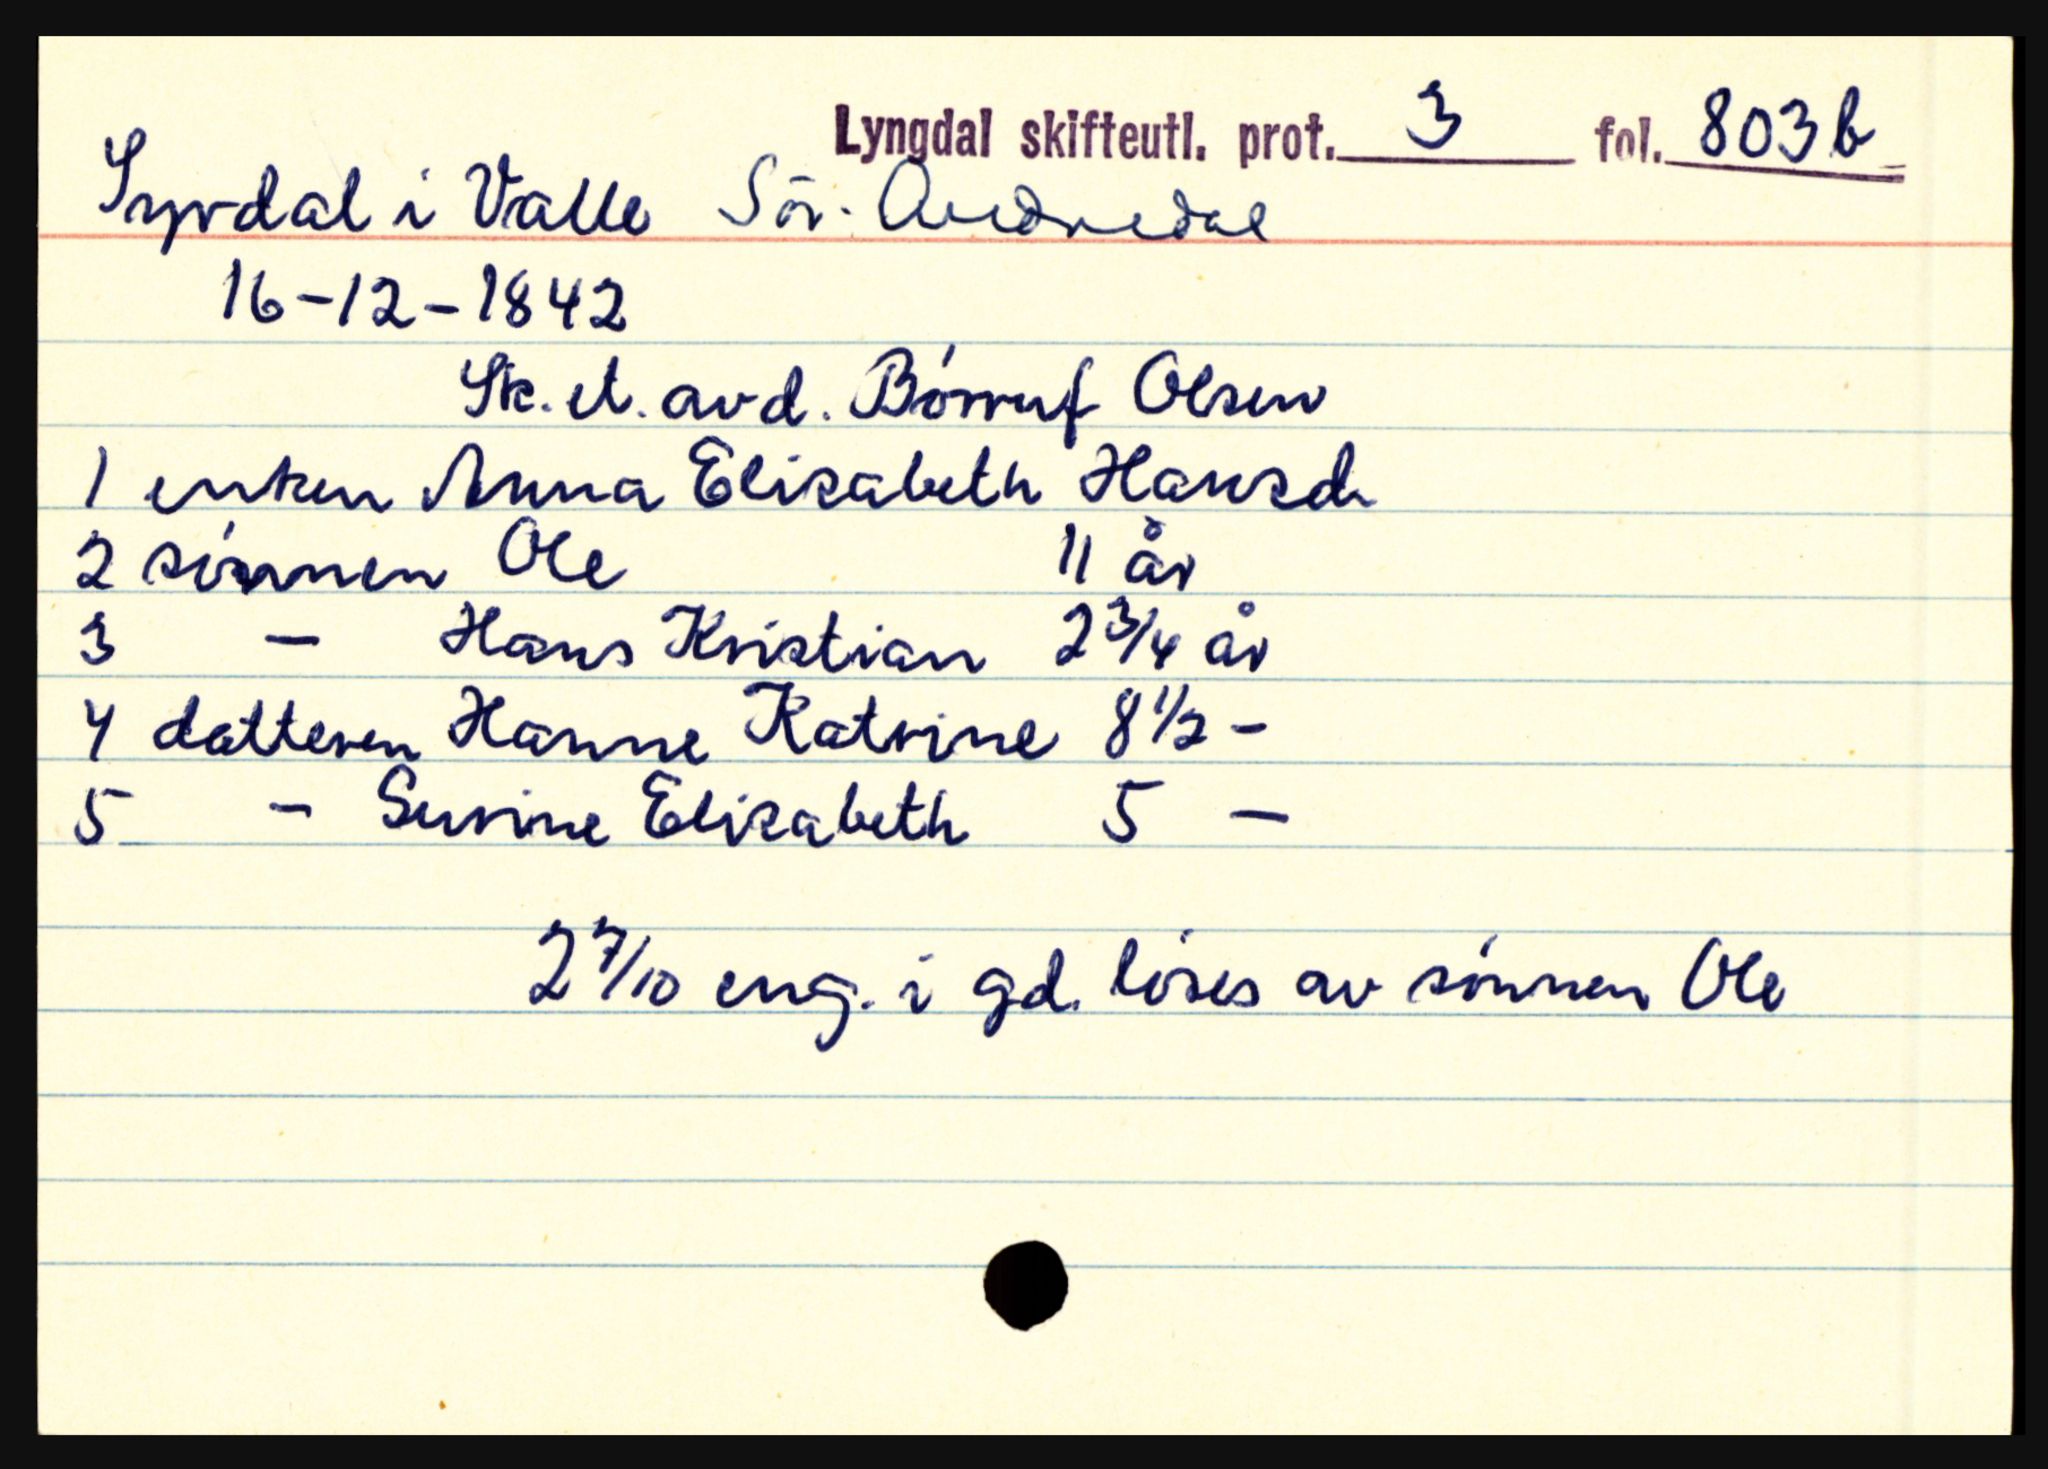 Lyngdal skifteutl. prot. 3 fol. 803 b
Syrdal i Valle Sör-Audnedal
16-12-1842
Sk. et. avd. Bórruf Olsen
1 enken Anna Elisabeth Hansd.
2 sónnen Ole 11 år
3 - Hans Kristian 2 3/4 år
4 datteren Hanne Katrine 8 1/2 -
5 - Serine Elisabeth 5 -
2 7/10 eng. i gd. lóses av sónnen Ole